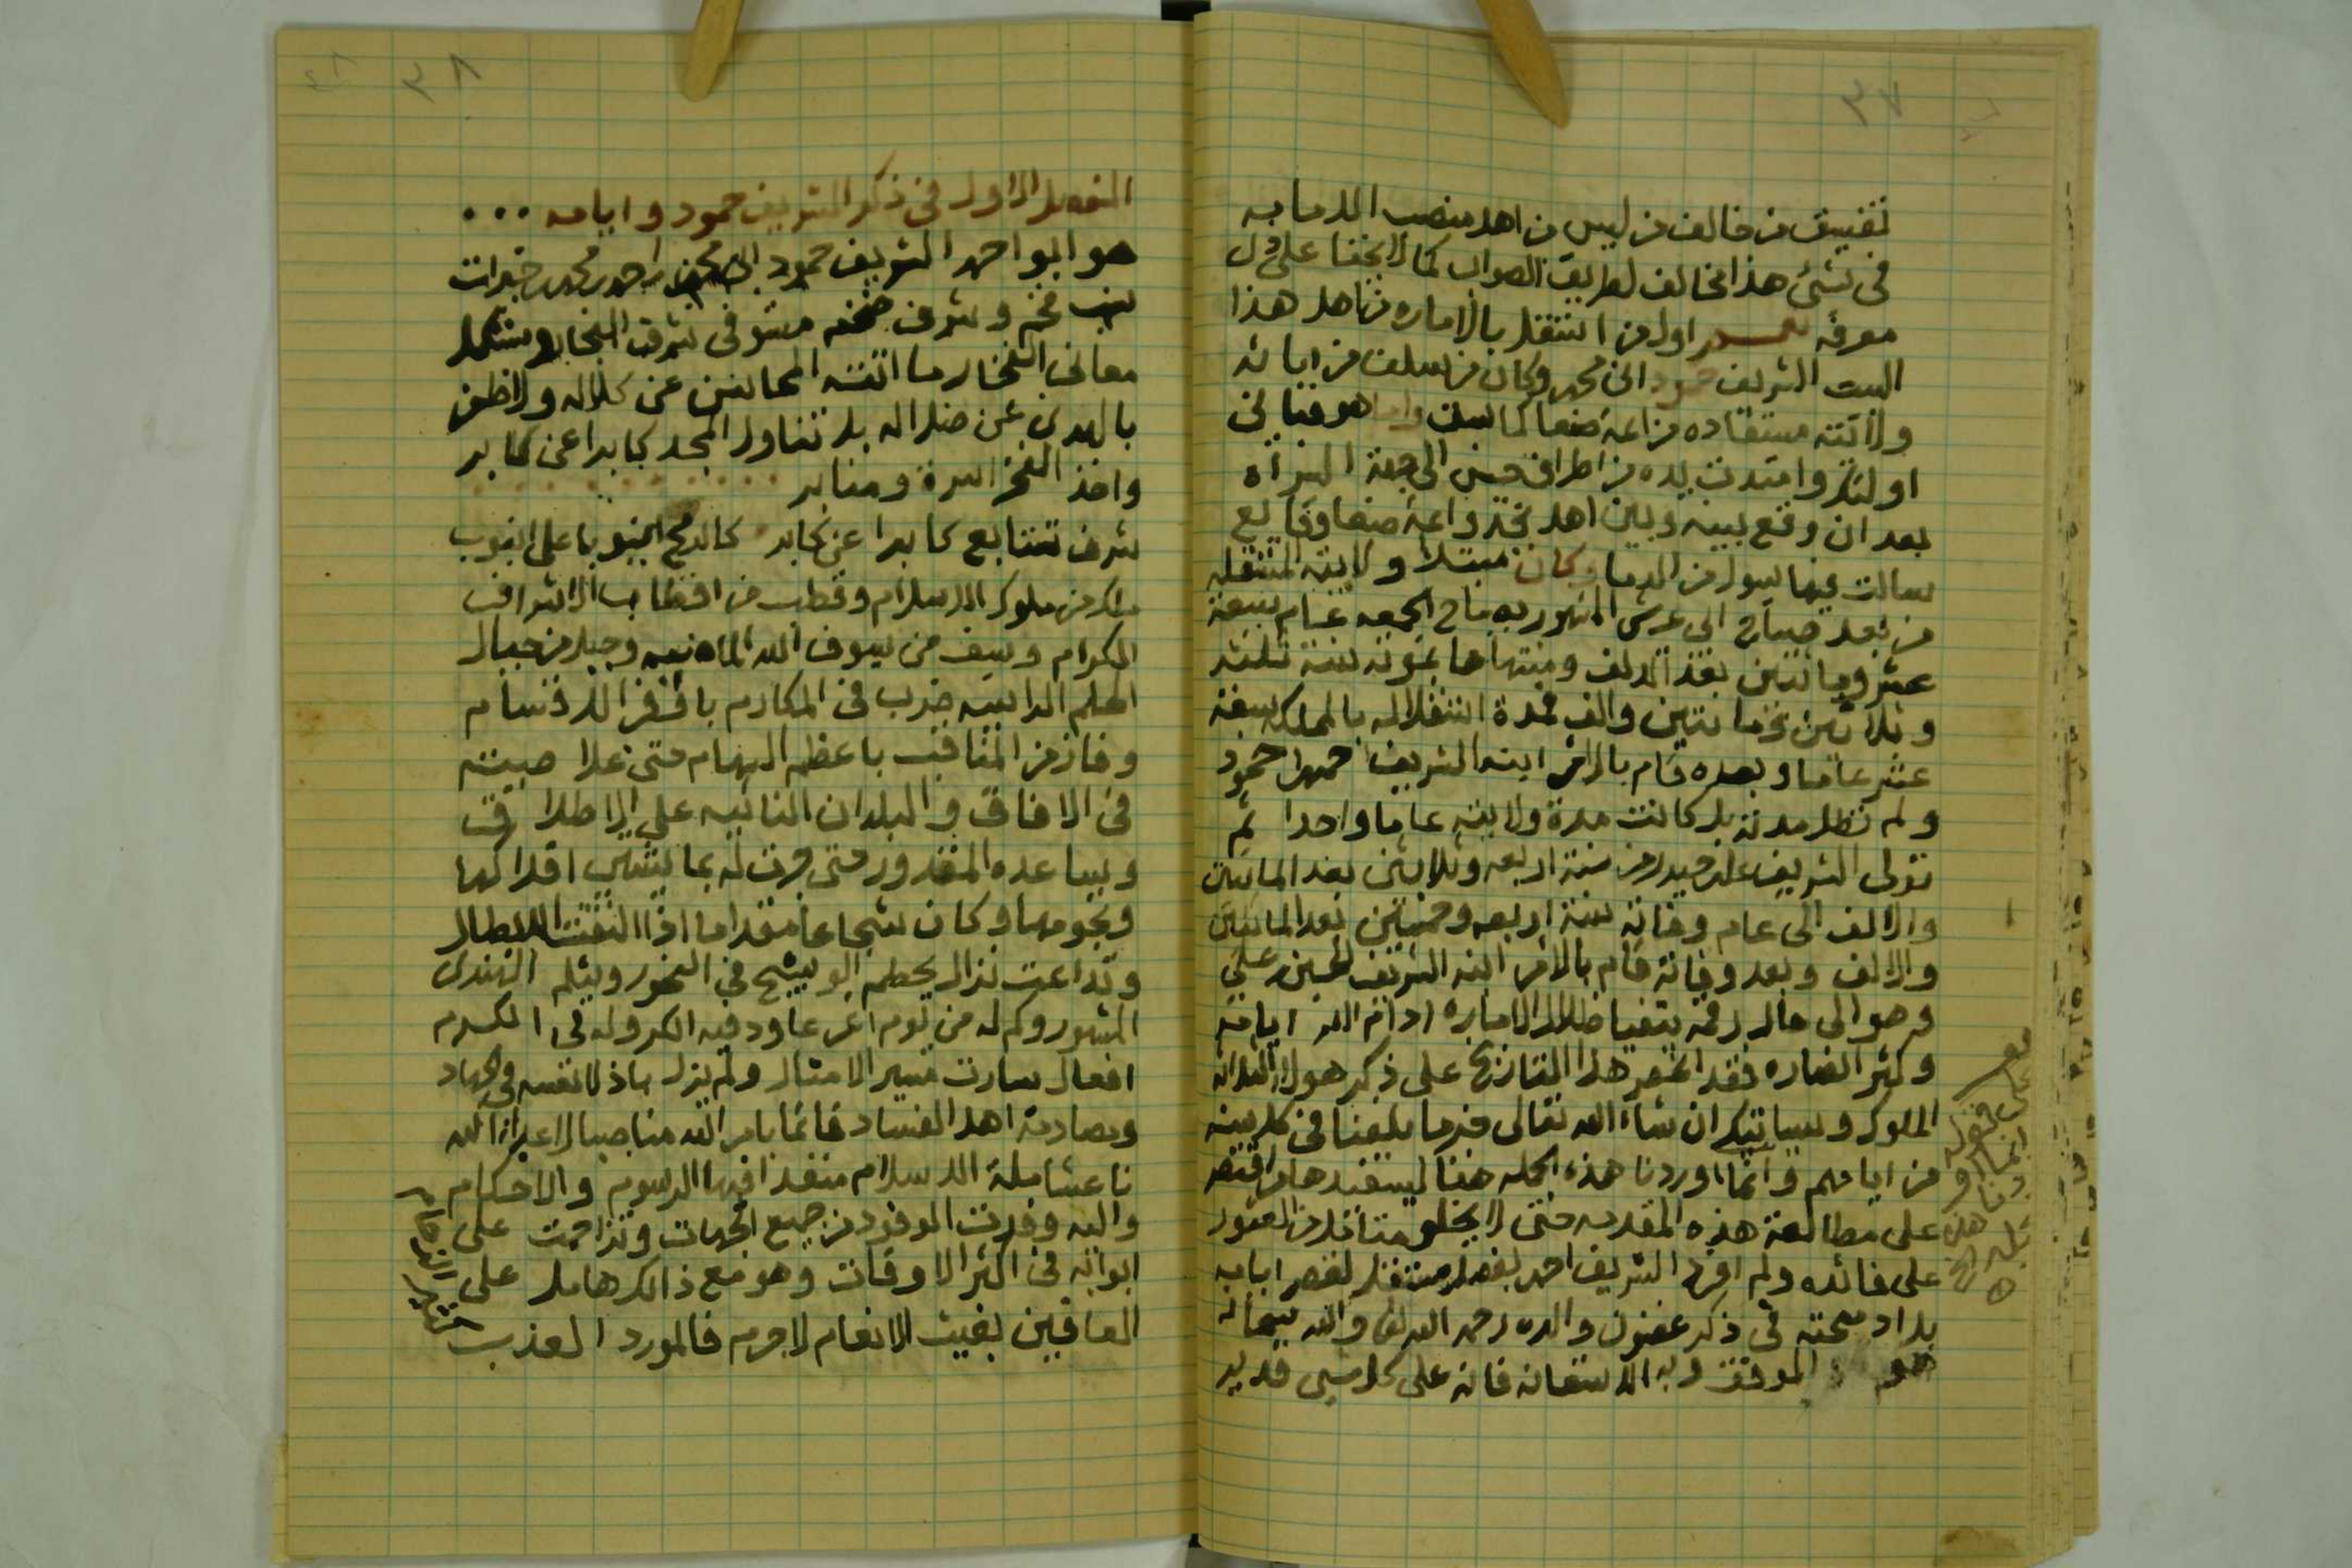 ٣٧
تفسيق من خالف من ليس من اهل منصب الامامه
فى شئ هذا مخالف لطريق الصواب كما لا يخفا على من ل
معرفه نعم اول من استقل بالاماره من اهل هذا
البيت الشريف حمود ابن محمد وكان من سلف من ابائه
ولايته مستفاده من ائمة صنعا كما سلف واما هو فباين
اولئك وامتدت يده من اطراف حيس الى جهة السراه
بعد ان وقع بينه وبين اهل نجد وائمة صنعا وقايع
سالت فيها سيول من الدماء وكان مبتداء ولايته المستقله
من بعد صبيا الى حرض المشهور به مناخ الجمعه عام سبعة
عشر ومائتين بعد الالف ومنتهاها بموته سنة ثلاث
وثلاثين ومائتين والف فمدة استقلاله بالمملكه سبعة
عشر عاما وبعده قام بالامر ابنه الشريف احمد ابن حمود
ولم تطل مدته بل كانت مدة ولايته عاما واحدا ثم
تولى الشريف على بن حيدر من سنة اربعه وثلاثين بعد المائتين
والالف الى عام وفاته سنة اربعه وخمسين بعد المائتين
والالف وبعد وفاته قام بالامر ابنه الشريف الحسين بن على
وهو الى حال رقمه يتفيا ظلال الاماره ادام الله ايامه
وكثر انصاره فقد انحصر هذا التاريخ على ذكر هولاء الثلاثه
الملوك وسياتيك ان شاء الله تعالى من ما بلغنا فى كل سنه
من ايامهم وانما اوردنا هذه الجمله هنا ليستفيدها من اقتصر
على مطالعة هذه المقدمه حتى لا يخلو متاملها من العثور
على فائده ولم افرد الشريف احمد بفصل مستقل لقصر ايامه
بل ادمجته فى ذكر غضون والده رحمه الله تعالى والله سبحانه
هو الموفق وبه الاستعانه فانه على كل شىء قدير
على قوله
انما او
ردنا
هذه
الجمله الخ
٣٨
الفصل الاول فى ذكر الشريف حمود وايامه ...
هو ابو احمد الشريف حمود ابن محمد بن احمد بن محمد بن خيرات
نسب فخم وشرف ضخم مستوفى شرف النجار ومستكمل
معانى الفخار ما اتته المحاسن عن كلاله ولا ظفر
بالهدى عن ضلاله بل تناول المجد كابرا عن كابر
واخذ الفخر اسرة ومنابر
شرف تتابع كابرا عن كابر كالرمح انبوبا على انبوب
ملك من ملوك الاسلام وقطب من اقطاب الاشراف
الكرام وسيف من سيوف الله الماضيه وجبل من جبال
الحلم الراسيه ضرب فى المكارم باوفر الاقسام
وفاز من المناقب باعظم السهام حتى علا صيته
فى الافاق والبلدان النائيه على الاطلاق
وساعده المقدور حتى جرت له بما يشتهى افلاكها
ونجومها وكان شجاعا مقداما اذا التقت الابطال
وتداعت نزال يحطم الوشيج فى النحور ويثلم الهندى
المشهور وكم له من يوم اغر عاود فيه الكر وله فى الكرم
افعال سارت مسير الامثال ولم يزل باذلا نفسه فى الجهاد
ومصادمة اهل الفساد قائما بامر الله مناصبا لاعداء الله
ناعشا ملة الاسلام منفذا فيها الرسوم والاحكام
واليه وفدت الوفود من جميع الجهات وتزاحمت على
ابوابه فى اكثر الاوقات وهو مع ذالك هامل على
العافين بغيث الانعام لاجرم فالمورد العذب